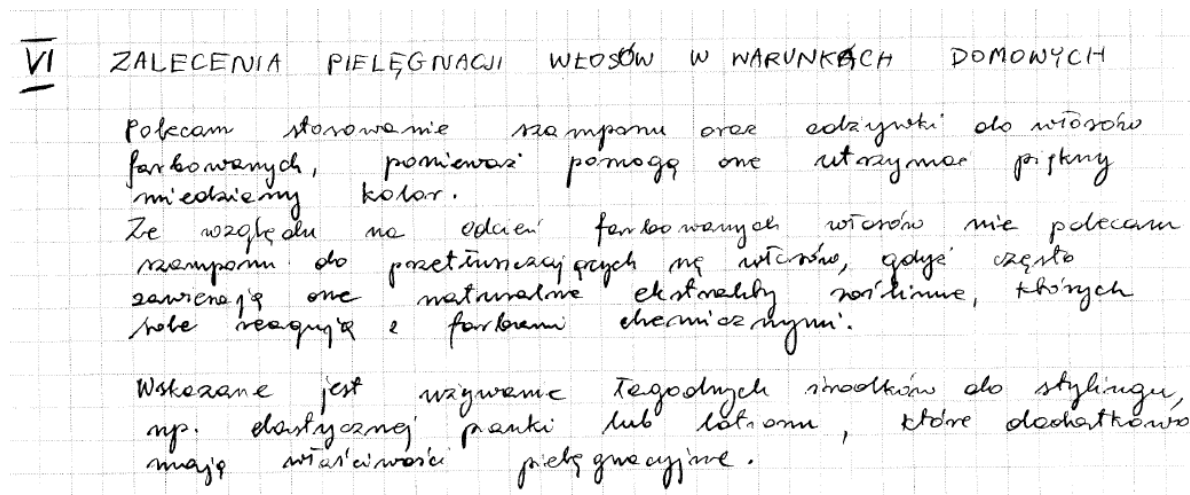 VI ZALECENIA PIELĘGNACJI WŁOSÓW W WARUNKACH DOMOWYCH
Polecam stosowanie szamponu oraz odżywki do włosów
farbowanych, ponieważ pomogą one utrzymać piękny
miedziany kolor.
Ze względu na odcień farbowanych włosów nie polecam
szamponu do przetłuszczających się włosów, gdyż często
zawierają one naturalne ekstrakty roślinne, których
sole reagują z farbami chemicznymi.
Wskazane jest używanie łagodnych środków do stylingu,
np. elastycznej pianki lub lotionu, które dodatkowo
mają właściwości pielęgnacyjne.